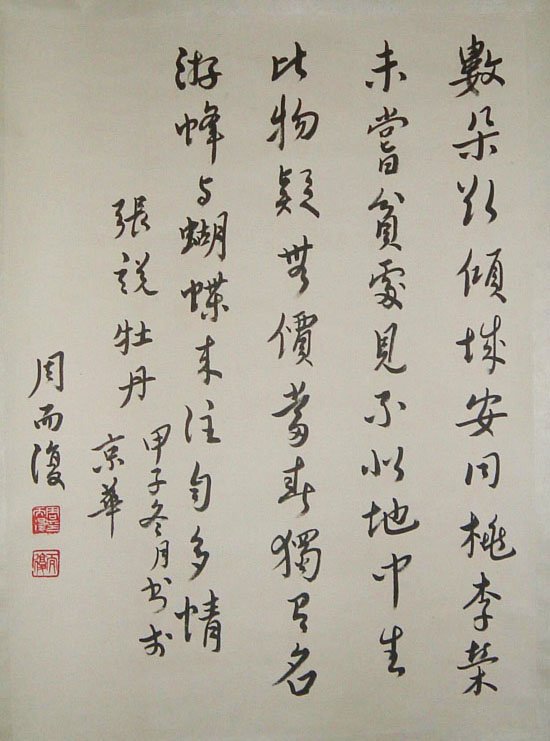 數朵欲傾城安同桃李榮
未嘗貧處見不似地中生
此物疑無價當春獨有名
游蜂与蝴蝶来往自多情
張說牡丹
甲子冬月书於
京華
周而復